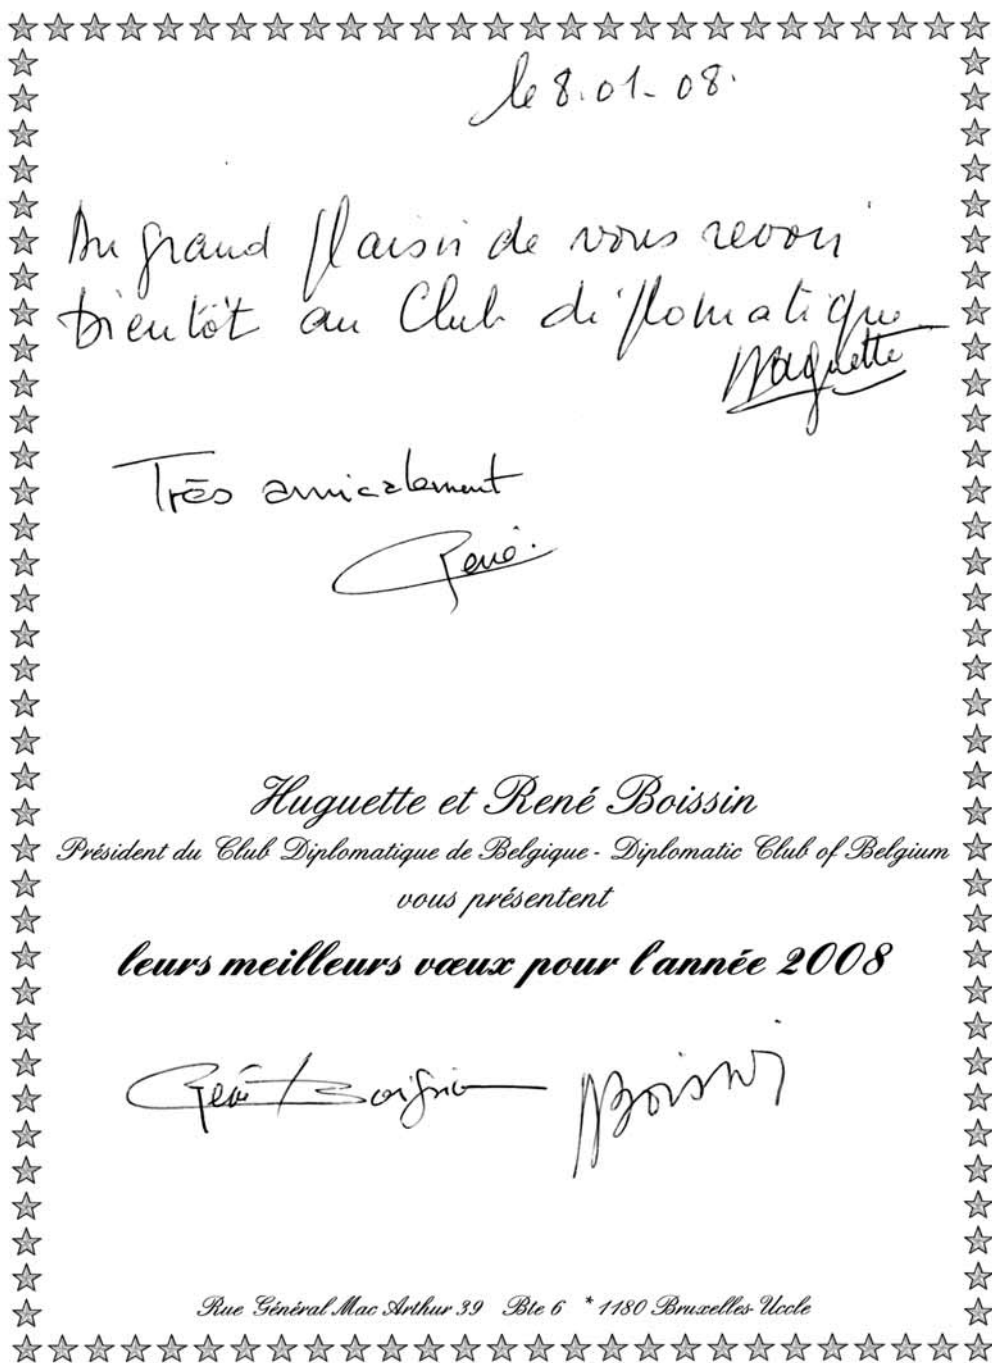 le 8.01-08.
Au grand plaisir de vous revoir
bientôt au Club diplomatique
Huguette
Très amicalement
René.
Huguette et René Boissin
Président du Club Diplomatique de Belgique - Diplomatic Club of Belgium
vous présentent
leurs meilleurs vœux pour l'année 2008
René Boissin HBoissin
Rue Général Mac Arthur 39 Bte 6 * 1180 Bruxelles-Uccle